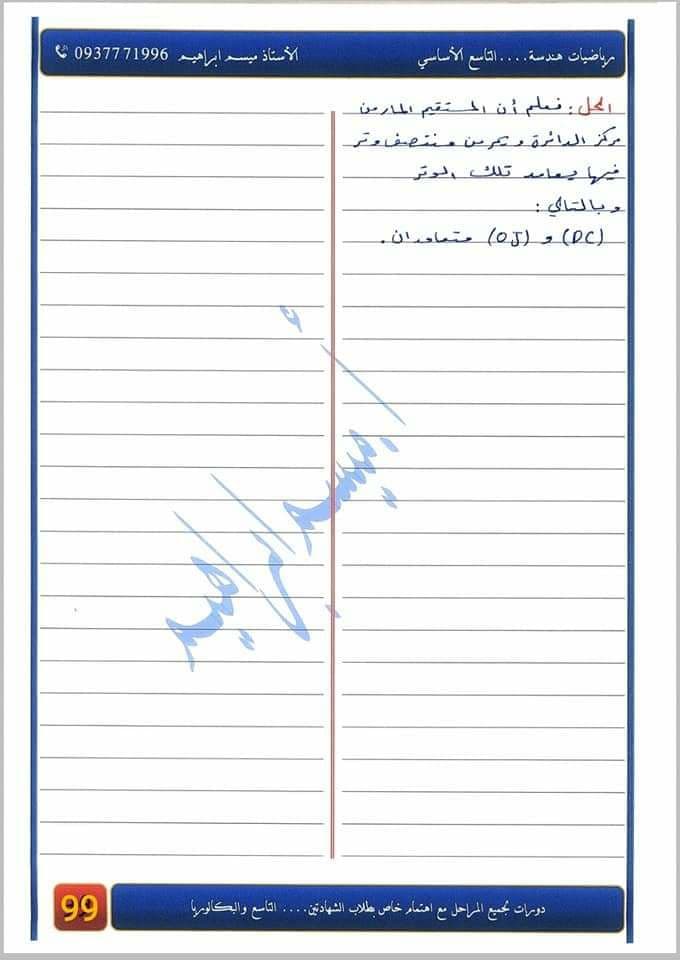 رياضيات هندسة.... التاسع الأساسي
الأستاذ ميسم ابراهيم 0937771996
الحل: نعلم أن المستقيم المار من
مركز الدائرة ويمر من منتصف وتر
فيها يعامد تلك الوتر
وبالتالي:
(DC) و (OJ) متعامدان.
ميسم ابراهيم
دورات لجميع المراحل مع اهتمام خاص بطلاب الشهادتين.... التاسع والبكالوريا
99